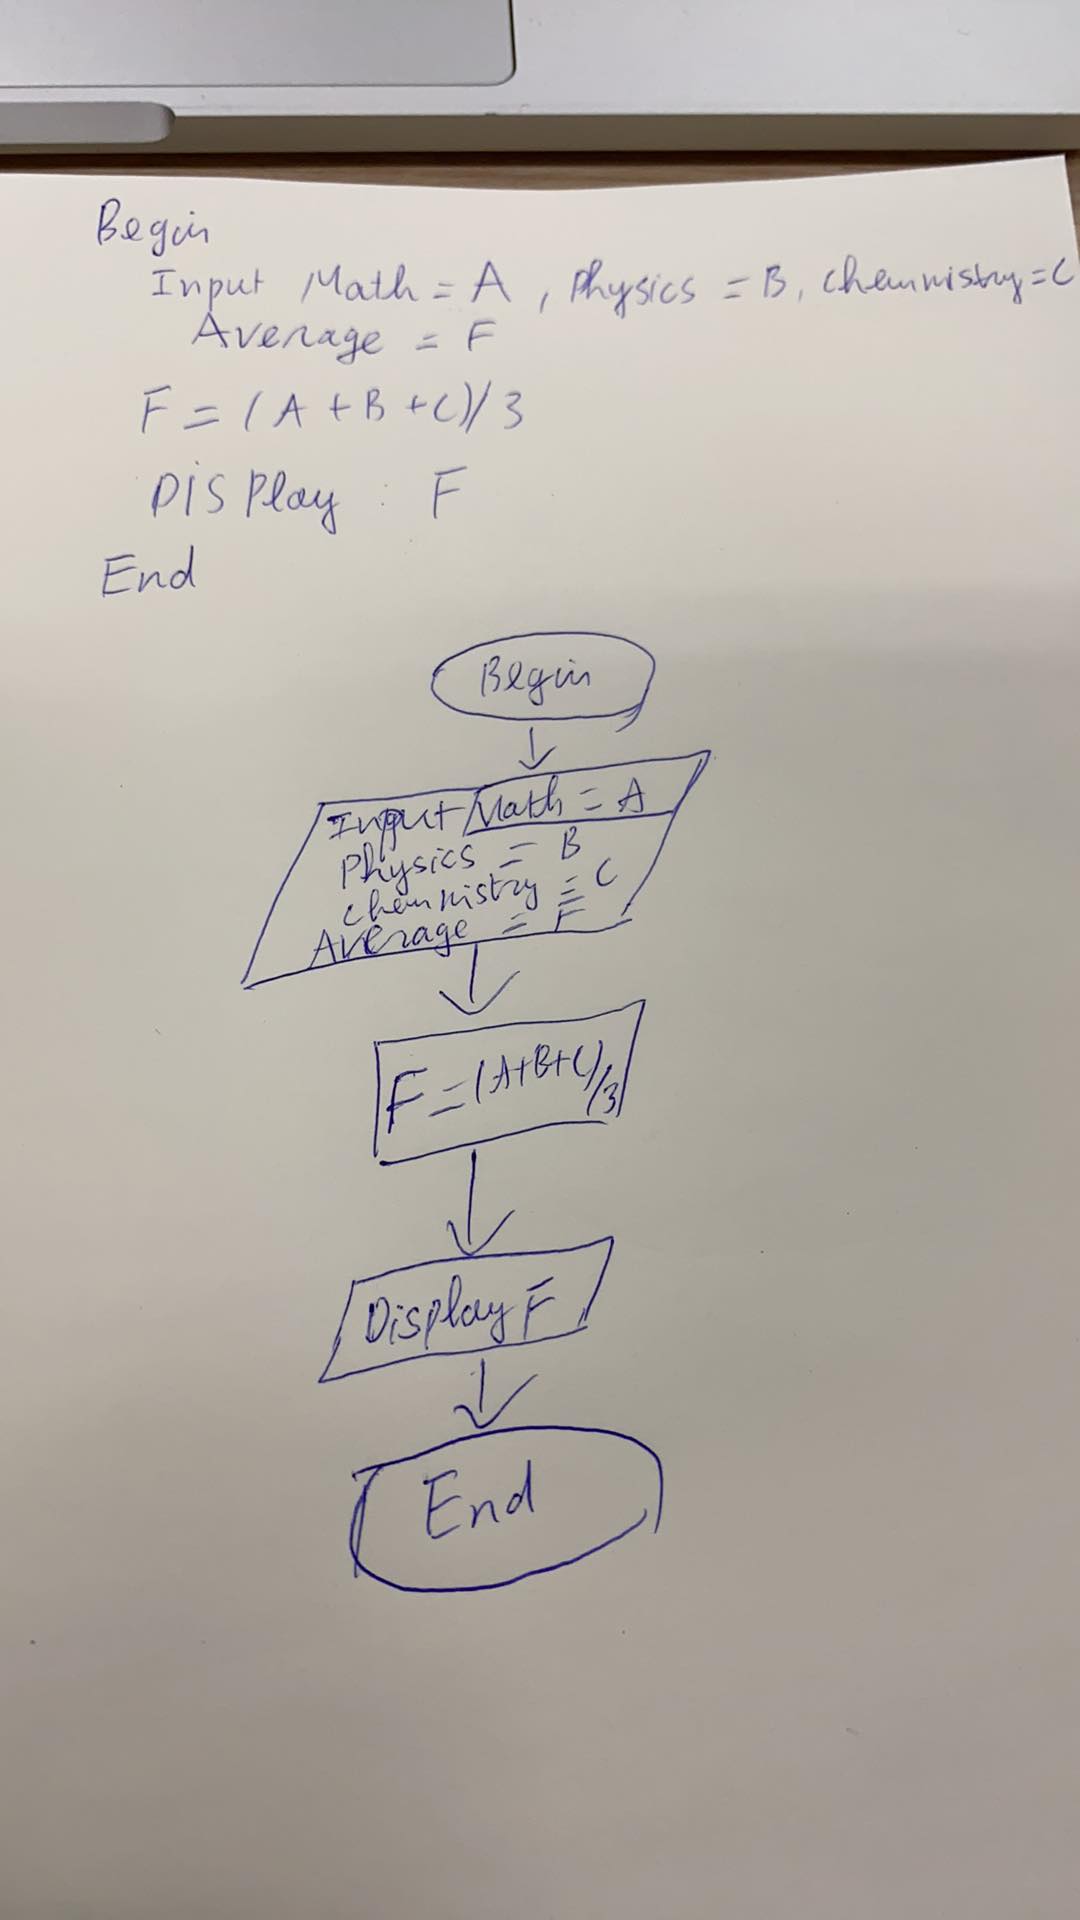 Begin
Input Math = A, Physics = B, Chemmistry = C
Average = F
F = (A + B + C)/3
DISPlay : F
End
Begin
Input Math = A
Physics = B
Chemmistry = C
Average = F
F = (A+B+C)/3
Display F
End